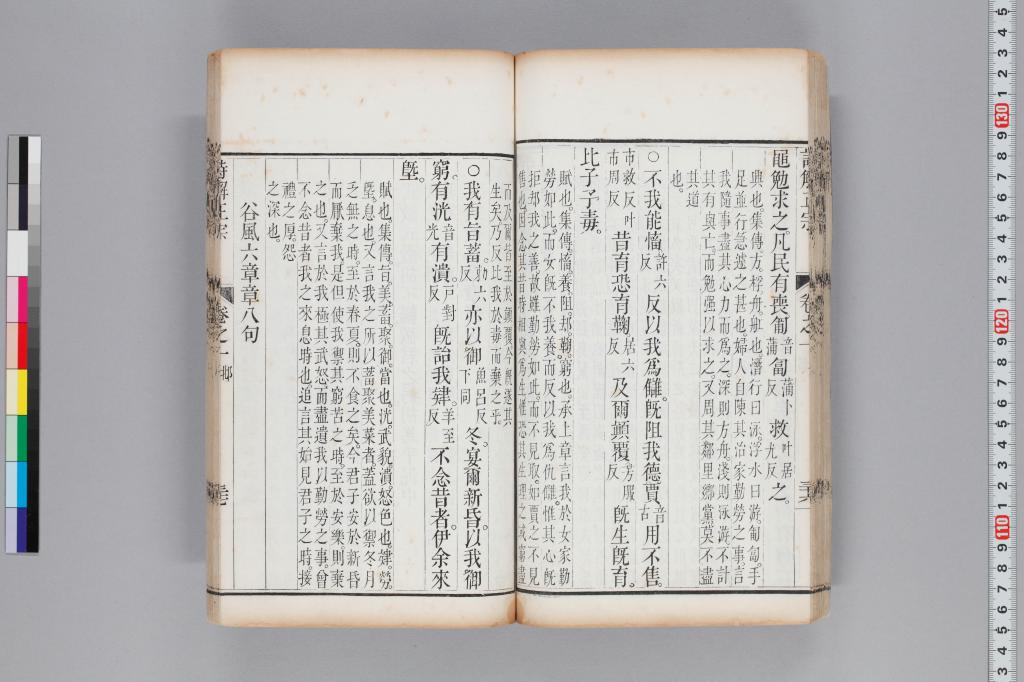 黽勉求之。凡民有喪匍音蒲卜蒲反匐叶居尤反救之。
興也。集傳方。桴。舟。船也。潛行曰泳。浮水曰游。匍匐。手
足並行。急遽之甚也。婦人自陳其治家勤勞之事。言
我隨事盡其心力而爲之。深則方舟。淺則泳游。不計
其有與亡。而勉强以求之。又周其鄰里鄉黨。莫不盡
其道
也。
○不我能慉許六反反以我爲讎。既阻我德賈音古用不售。
市救反叶市周反昔育恐育鞠居六反及爾顛覆芳服反既生既育。
比予于毒。
賦也。集傳慉。養。阻。却。鞠。窮也。承上章言我於女家勤
勞如此。而女既不我養。而反以我爲仇讎。惟其心既
拒却我之善。故雖勤勞如此。而不見取。如賈之不見
售也。因念其昔時相與爲生。惟恐其生理之或窮盡
而及爾皆至於顛覆。今既遂其
生矣。乃反比我於毒而棄之乎。
○我有旨蓄勅六反亦以御魚呂反下同冬。宴爾新昏。以我御
窮。有洸音光有潰。戶對反既詒我肄。羊至反不念昔者。伊余來
塈。
賦也。集傳。旨。美。蓄。聚。御。當也。洸。武貌。潰。怒色也。肄。勞。
塈。息也。又言我之所以蓄聚美菜者。蓋欲以禦冬月
乏無之時。至於春夏。則不食之矣。今君子安於新昏
而厭棄我。是但使我禦其窮苦之時。至於安樂則棄
之也。又言於我極其武怒。而盡遺我以勤勞之事。曾
不念昔者我之來息時也。追言其始見君子之時。接
禮之厚。怨
之深也。
谷風六章章八句
詩解正宗 卷之一 邶